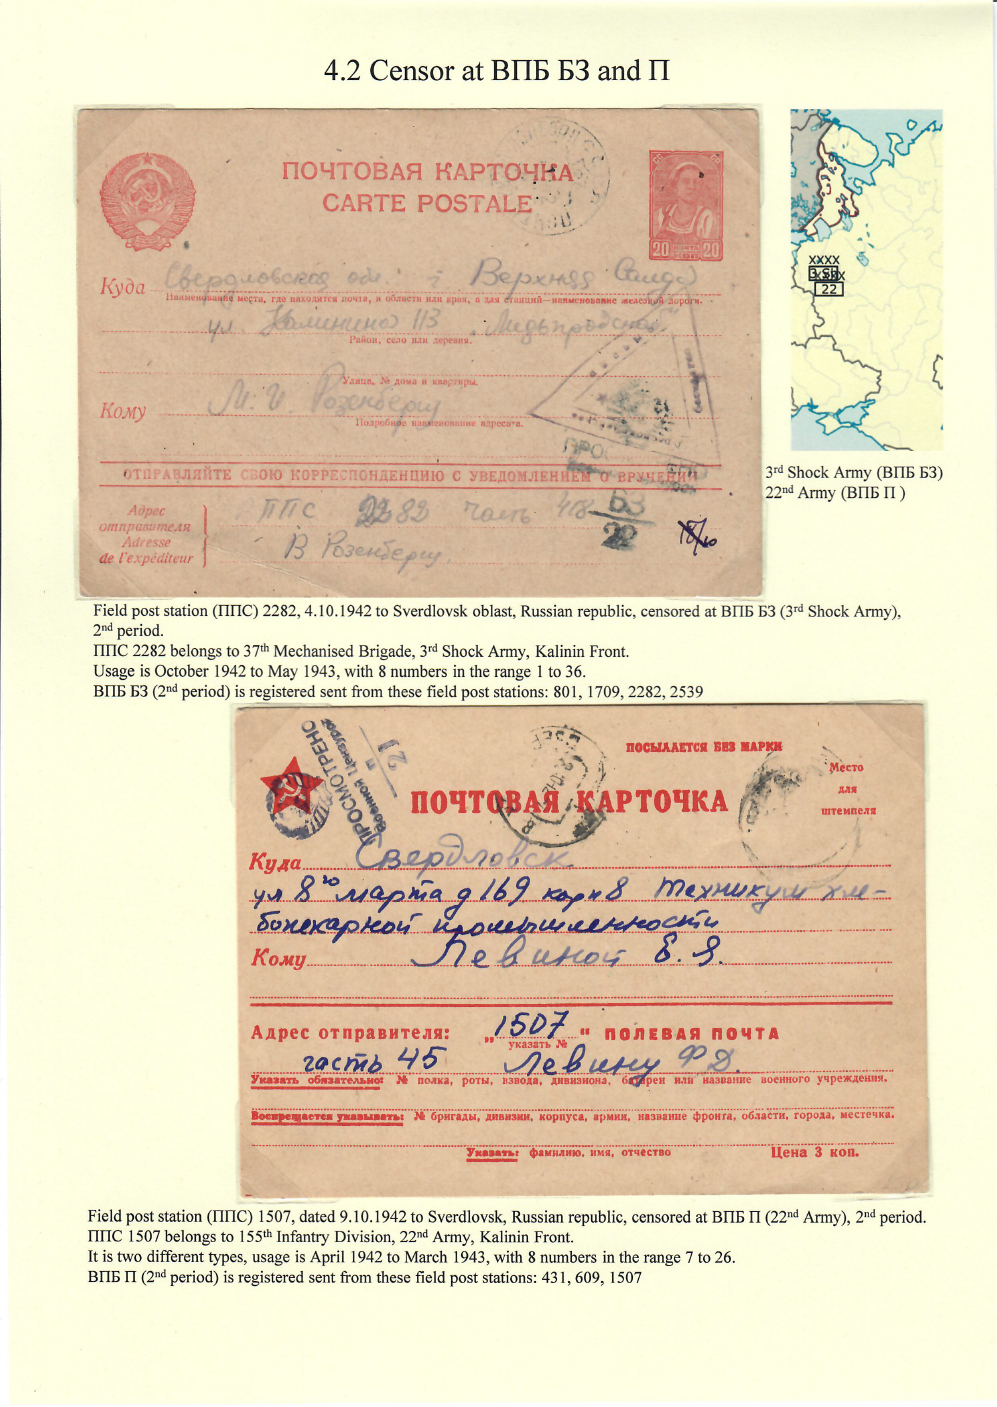 4.2 Censor at ВПБ БЗ and П
ПОЧТОВАЯ КАРТОЧКА
CARTE POSTALE
20 20
Куда Свердловская обл. г Верхняя Салда
Наименование места, где находится почта, и области или края, а для станций—наименование железной дороги.
ул Калинина 113
Район, село или деревня.
Улица, № дома и квартиры.
Кому М. И. Розенберг
Подробное наименование адресата.
ОТПРАВЛЯЙТЕ СВОЮ КОРРЕСПОНДЕНЦИЮ С УВЕДОМЛЕНИЕМ О ВРУЧЕНИИ
БЗ
22
Адрес отправителя
Adresse de l'expéditeur
ППС 2282 часть 418
В Розенберг.
XXXX
22
3rd Shock Army (ВПБ БЗ)
22nd Army (ВПБ П )
Field post station (ППС) 2282, 4.10.1942 to Sverdlovsk oblast, Russian republic, censored at ВПБ БЗ (3rd Shock Army),
2nd period.
ППС 2282 belongs to 37th Mechanised Brigade, 3rd Shock Army, Kalinin Front.
Usage is October 1942 to May 1943, with 8 numbers in the range 1 to 36.
ВПБ БЗ (2nd period) is registered sent from these field post stations: 801, 1709, 2282, 2539
ПРОСМОТРЕНО
Военной Цензурой
П
21
ПОСЫЛАЕТСЯ БЕЗ МАРКИ
Место
для
штемпеля
ПОЧТОВАЯ КАРТОЧКА
Куда Свердловск
ул 8го марта д 169 корп 8 Техникум хле-
бопекарной промышленности
Кому Левиной Е. Я.
Адрес отправителя: „1507" ПОЛЕВАЯ ПОЧТА
указать №
часть 45 Левину Ф Д.
Указать обязательно: № полка, роты, взвода, дивизиона, батареи или название военного учреждения.
Воспрещается указывать: № бригады, дивизии, корпуса, армии, название фронта, области, города, местечка.
Указать: фамилию, имя, отчество
Цена 3 коп.
Field post station (ППС) 1507, dated 9.10.1942 to Sverdlovsk, Russian republic, censored at ВПБ П (22nd Army), 2nd period.
ППС 1507 belongs to 155th Infantry Division, 22nd Army, Kalinin Front.
It is two different types, usage is April 1942 to March 1943, with 8 numbers in the range 7 to 26.
ВПБ П (2nd period) is registered sent from these field post stations: 431, 609, 1507